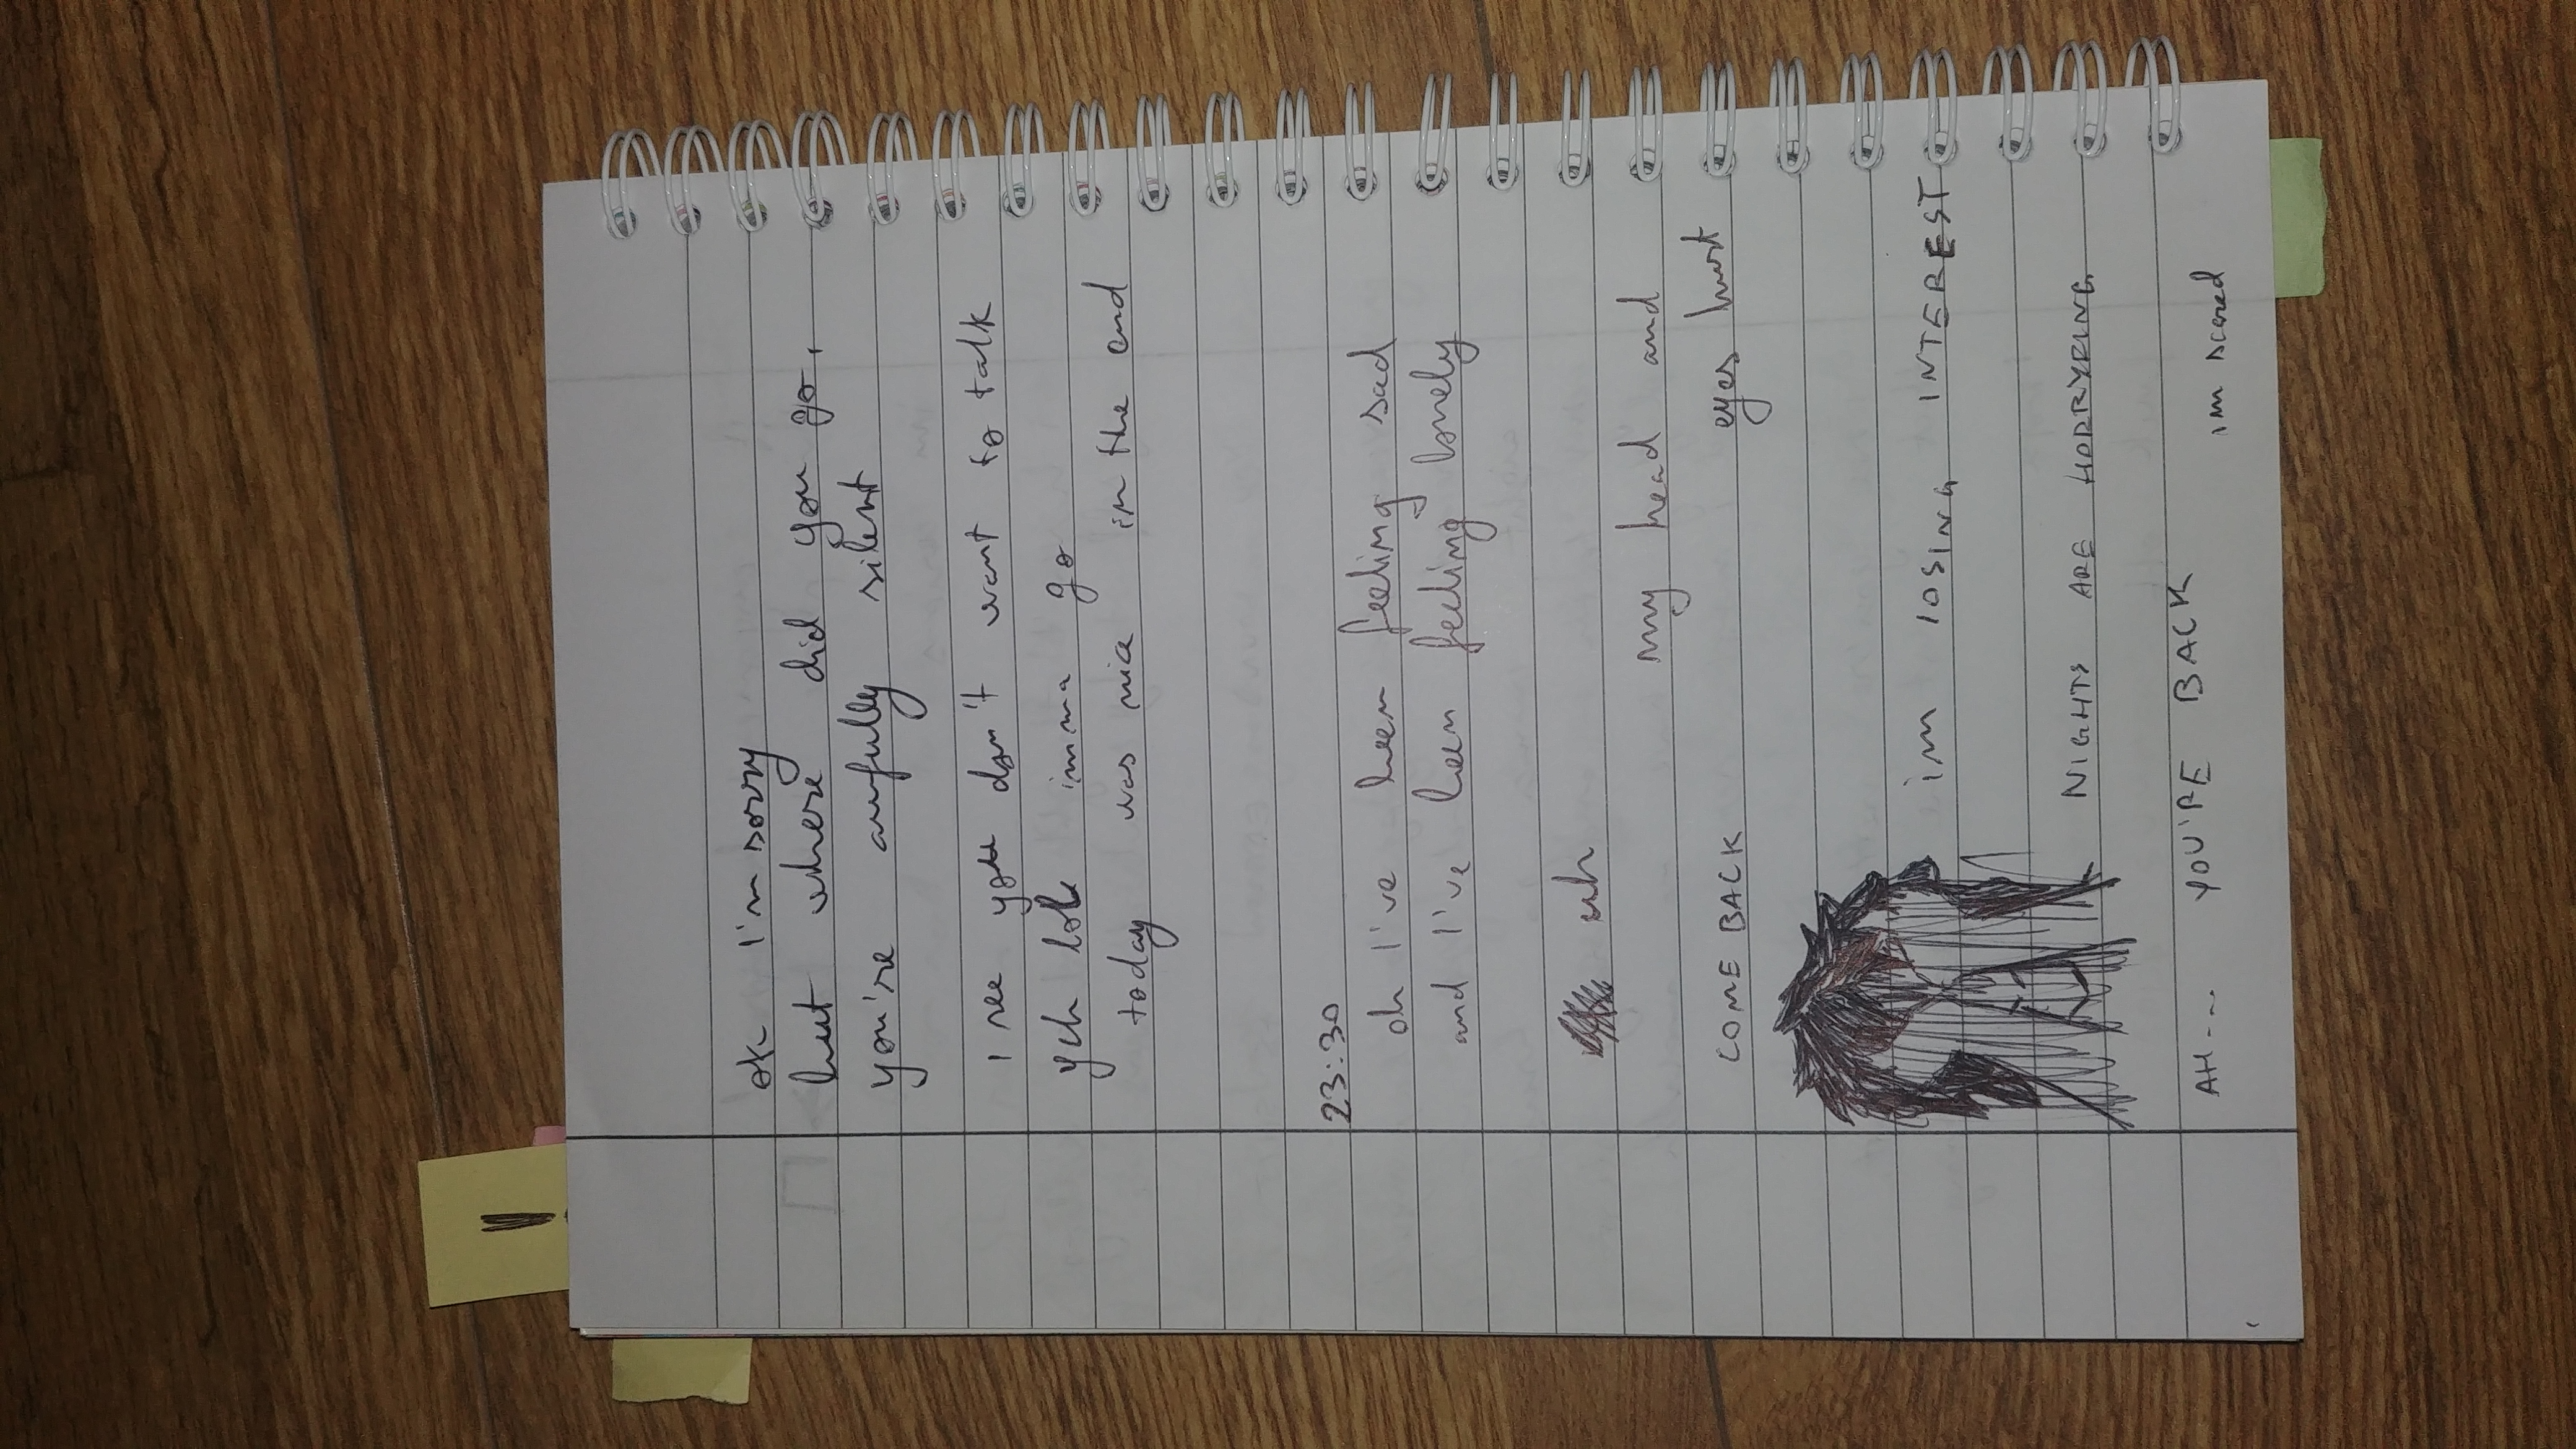 !
ok I'm sorry
but where did you go,
you're awfully silent
I see you don't want to talk
yeh lol imma go
today was nice in the end
23:30
oh I've been feeling sad
and I've been feeling lonely
uh
my head and
COME BACK eyes hurt
im lOSING INTEREST
NIGHTS ARE HORRYFING
AH... YOU'RE BACK
im scared